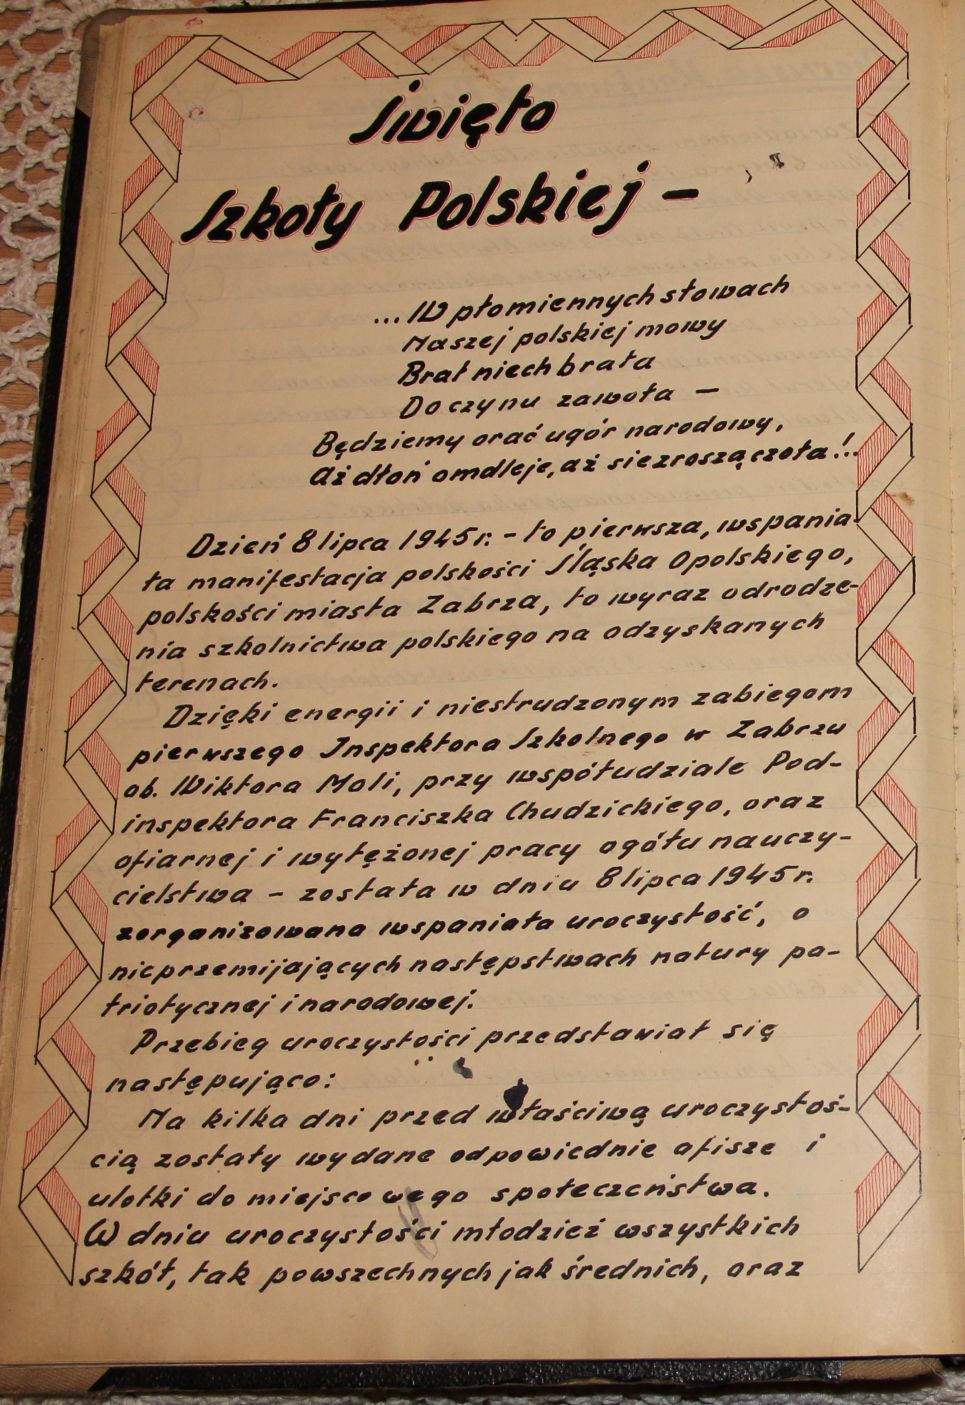 Święto
Szkoły Polskiej –
... W płomiennych słowach
Naszej polskiej mowy
Brat niech brata
Do czynu zawoła –
Będziemy orać ugór narodowy,
Aż dłoń omdleje, aż się zroszą czoła!..
Dzień 8 lipca 1945 r. – to pierwsza, wspania-
ła manifestacja polskości Śląska Opolskiego,
polskości miasta Zabrza, to wyraz odrodze-
nia szkolnictwa polskiego na odzyskanych
terenach.
Dzięki energii i niestrudzonym zabiegom
pierwszego Inspektora Szkolnego w Zabrzu
ob. Wiktora Moli, przy współudziale Pod-
inspektora Franciszka Chudzickiego, oraz
ofiarnej i wytężonej pracy ogółu nauczy-
cielstwa – została w dniu 8 lipca 1945 r.
zorganizowana wspaniała uroczystość, o
nieprzemijających następstwach natury pa-
triotycznej i narodowej.
Przebieg uroczystości przedstawiał się
następująco:
Na kilka dni przed właściwą uroczystoś-
cią zostały wydane odpowiednie afisze i
ulotki do miejscowego społeczeństwa.
W dniu uroczystości młodzież wszystkich
szkół, tak powszechnych jak średnich, oraz